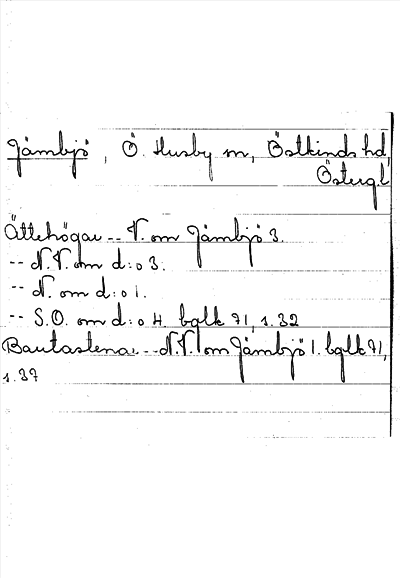 Jämbjö, Ö. Husby sn, Östkinds hd,
Östergl
Ättehögar -- V. om Jämbjö 3.
-- N.V. om d:o 3.
-- N. om d:o 1.
-- S.O. om d:o 4. bglk 71, 1.32
Bautastenar -- N.V. om Jämbjö 1. bglk 71,
1.37